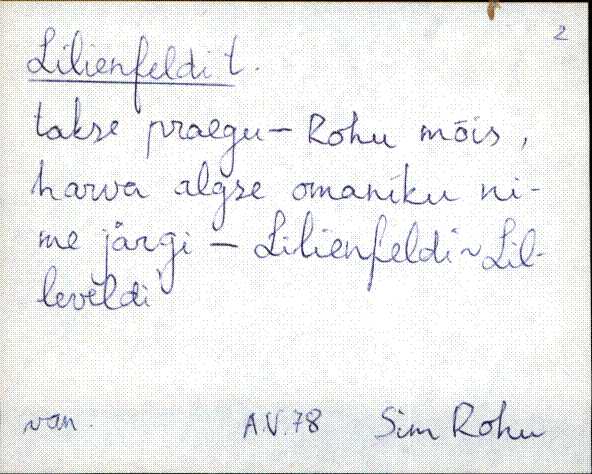 2
Lilienfeldi t.
takse praegu – Rohu mõis,
harva algse omaniku ni-
me järgi – Lilienfeldi ~ Lil-
leveldi
van. A.V.78 Sim Rohu